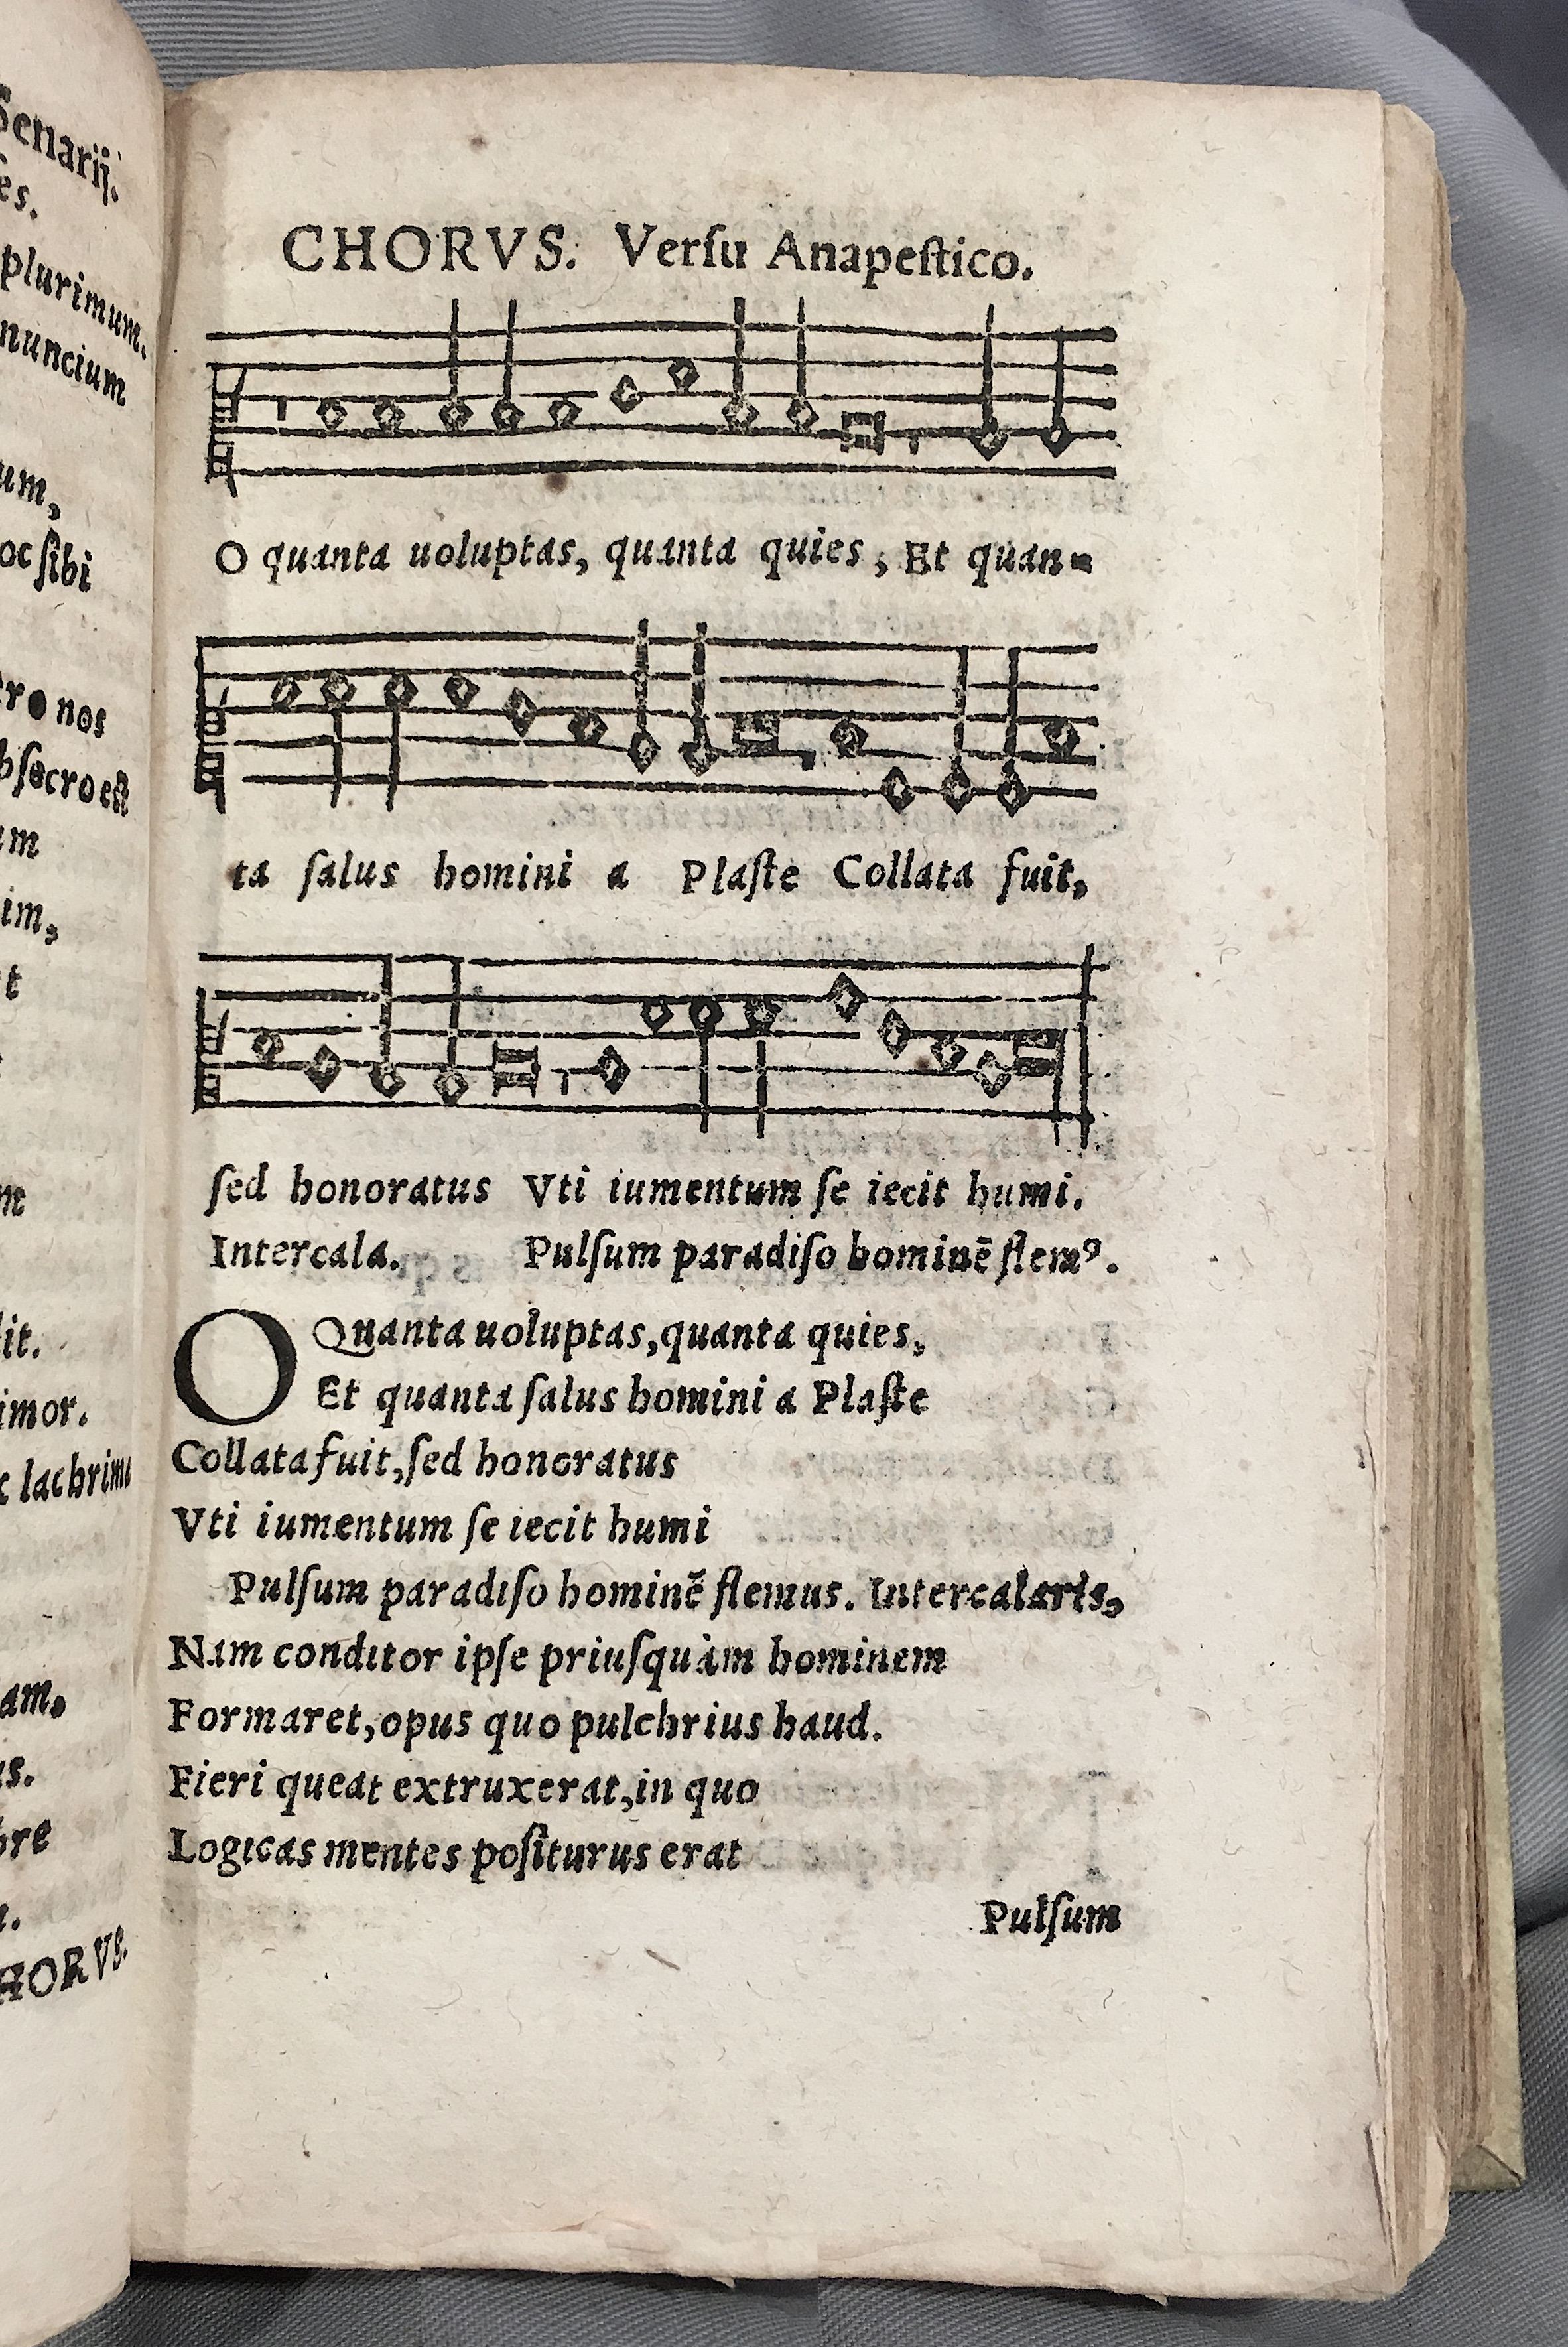 Senarij.
es.
plurimum.
nuncium
um,
oc ſibi
ro nos
bſecro eſt
um
im,
t
m
dit.
imor.
c lachrima
am,
us.
bre
HORVS.
CHORVS. Verſu Anapeſtico.
O quanta uoluptas, quanta quies, Et quan-
ta ſalus homini a Plaſte Collata fuit,
ſed honoratus Vti iumentum ſe iecit humi.
Intercala. Pulſum paradiſo hominē flemꝰ.
O Quanta uoluptas, quanta quies,
Et quanta ſalus homini a Plaſte
Collata fuit, ſed honoratus
Vti iumentum ſe iecit humi
Pulſum paradiſo hominē flemus. Intercalaris,
Nam conditor ipſe priuſquàm hominem
Formaret, opus quo pulchrius haud.
Fieri queat extruxerat, in quo
Logicas mentes poſiturus erat
Pulſum